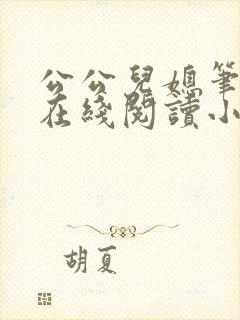 公公兒媳筆
在綫閱讀小
胡夏